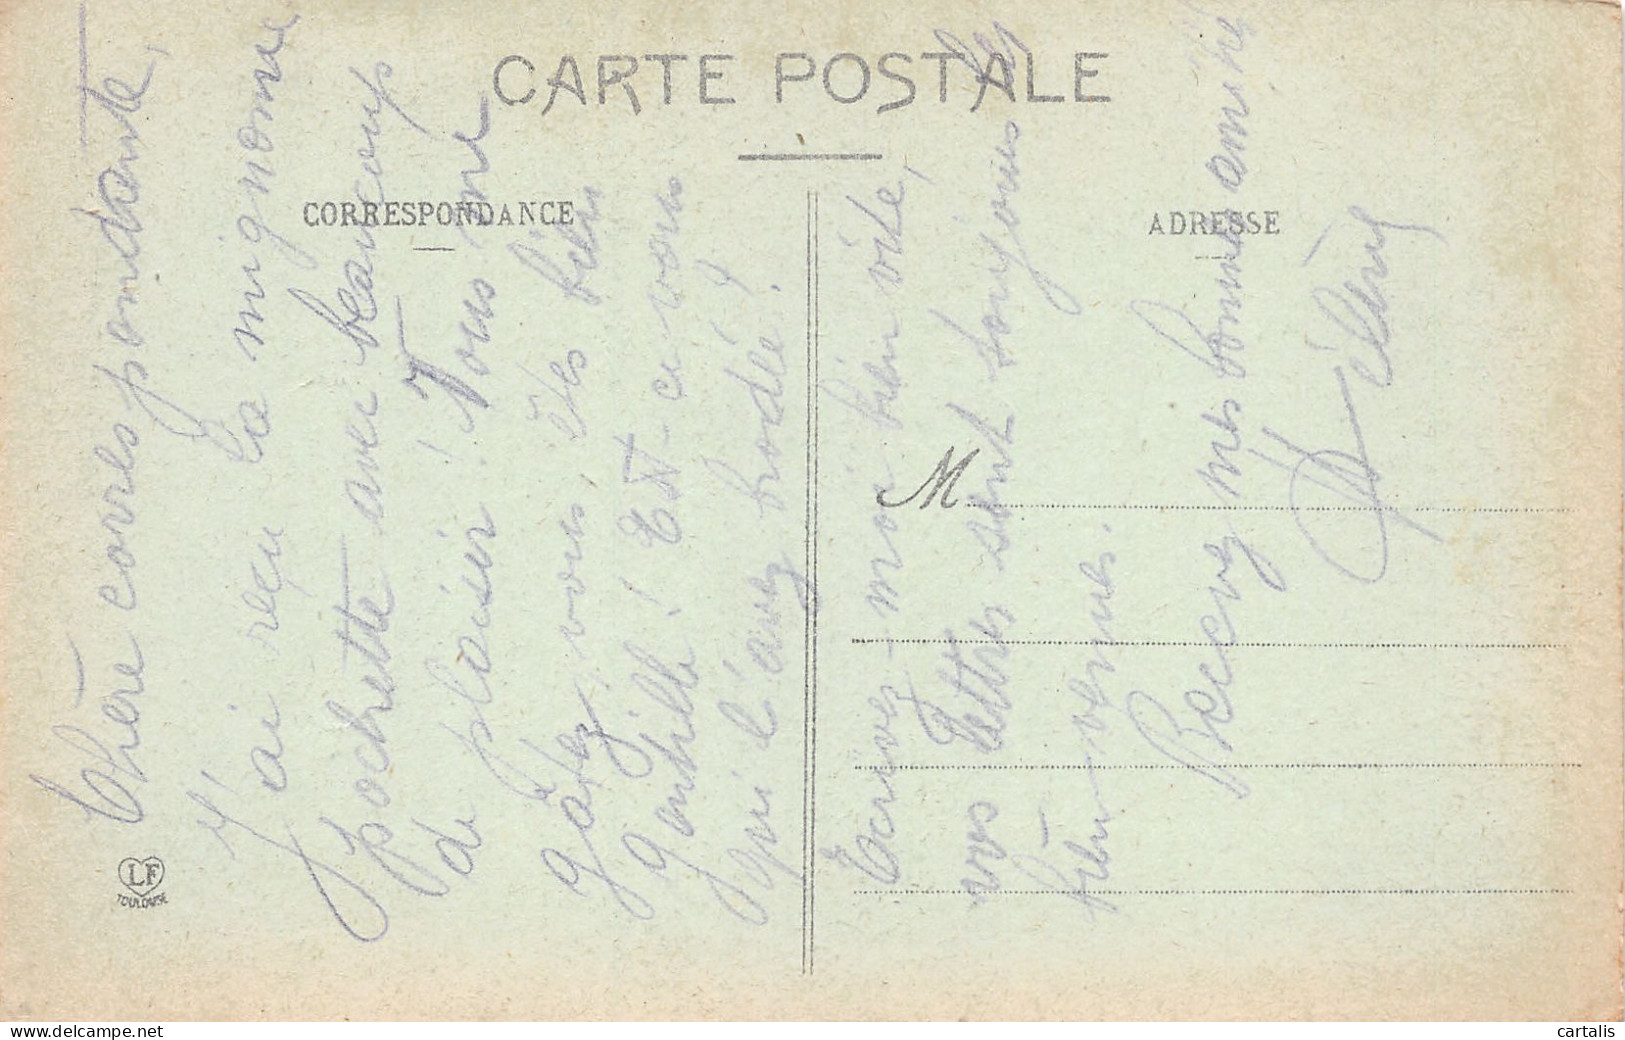 CARTE POSTALE
CORRESPONDANCE
ADRESSE
M
LF
TOULOUSE
Chère correspondante,
J'ai reçu la mignonne
pochette avec beaucoup
de plaisir ! Vous me
gâtez, vous êtes bien
gentille ! Est-ce vous
qui l'avez brodée ?
Ecrivez-moi bien vite,
vos lettres sont toujours les
bien-venues.
Recevez mes bonnes amitiés
delcampe.net
cartalis